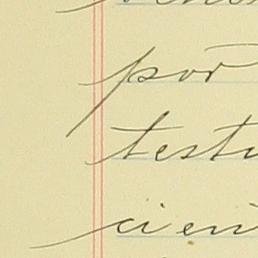 por
testu
cien